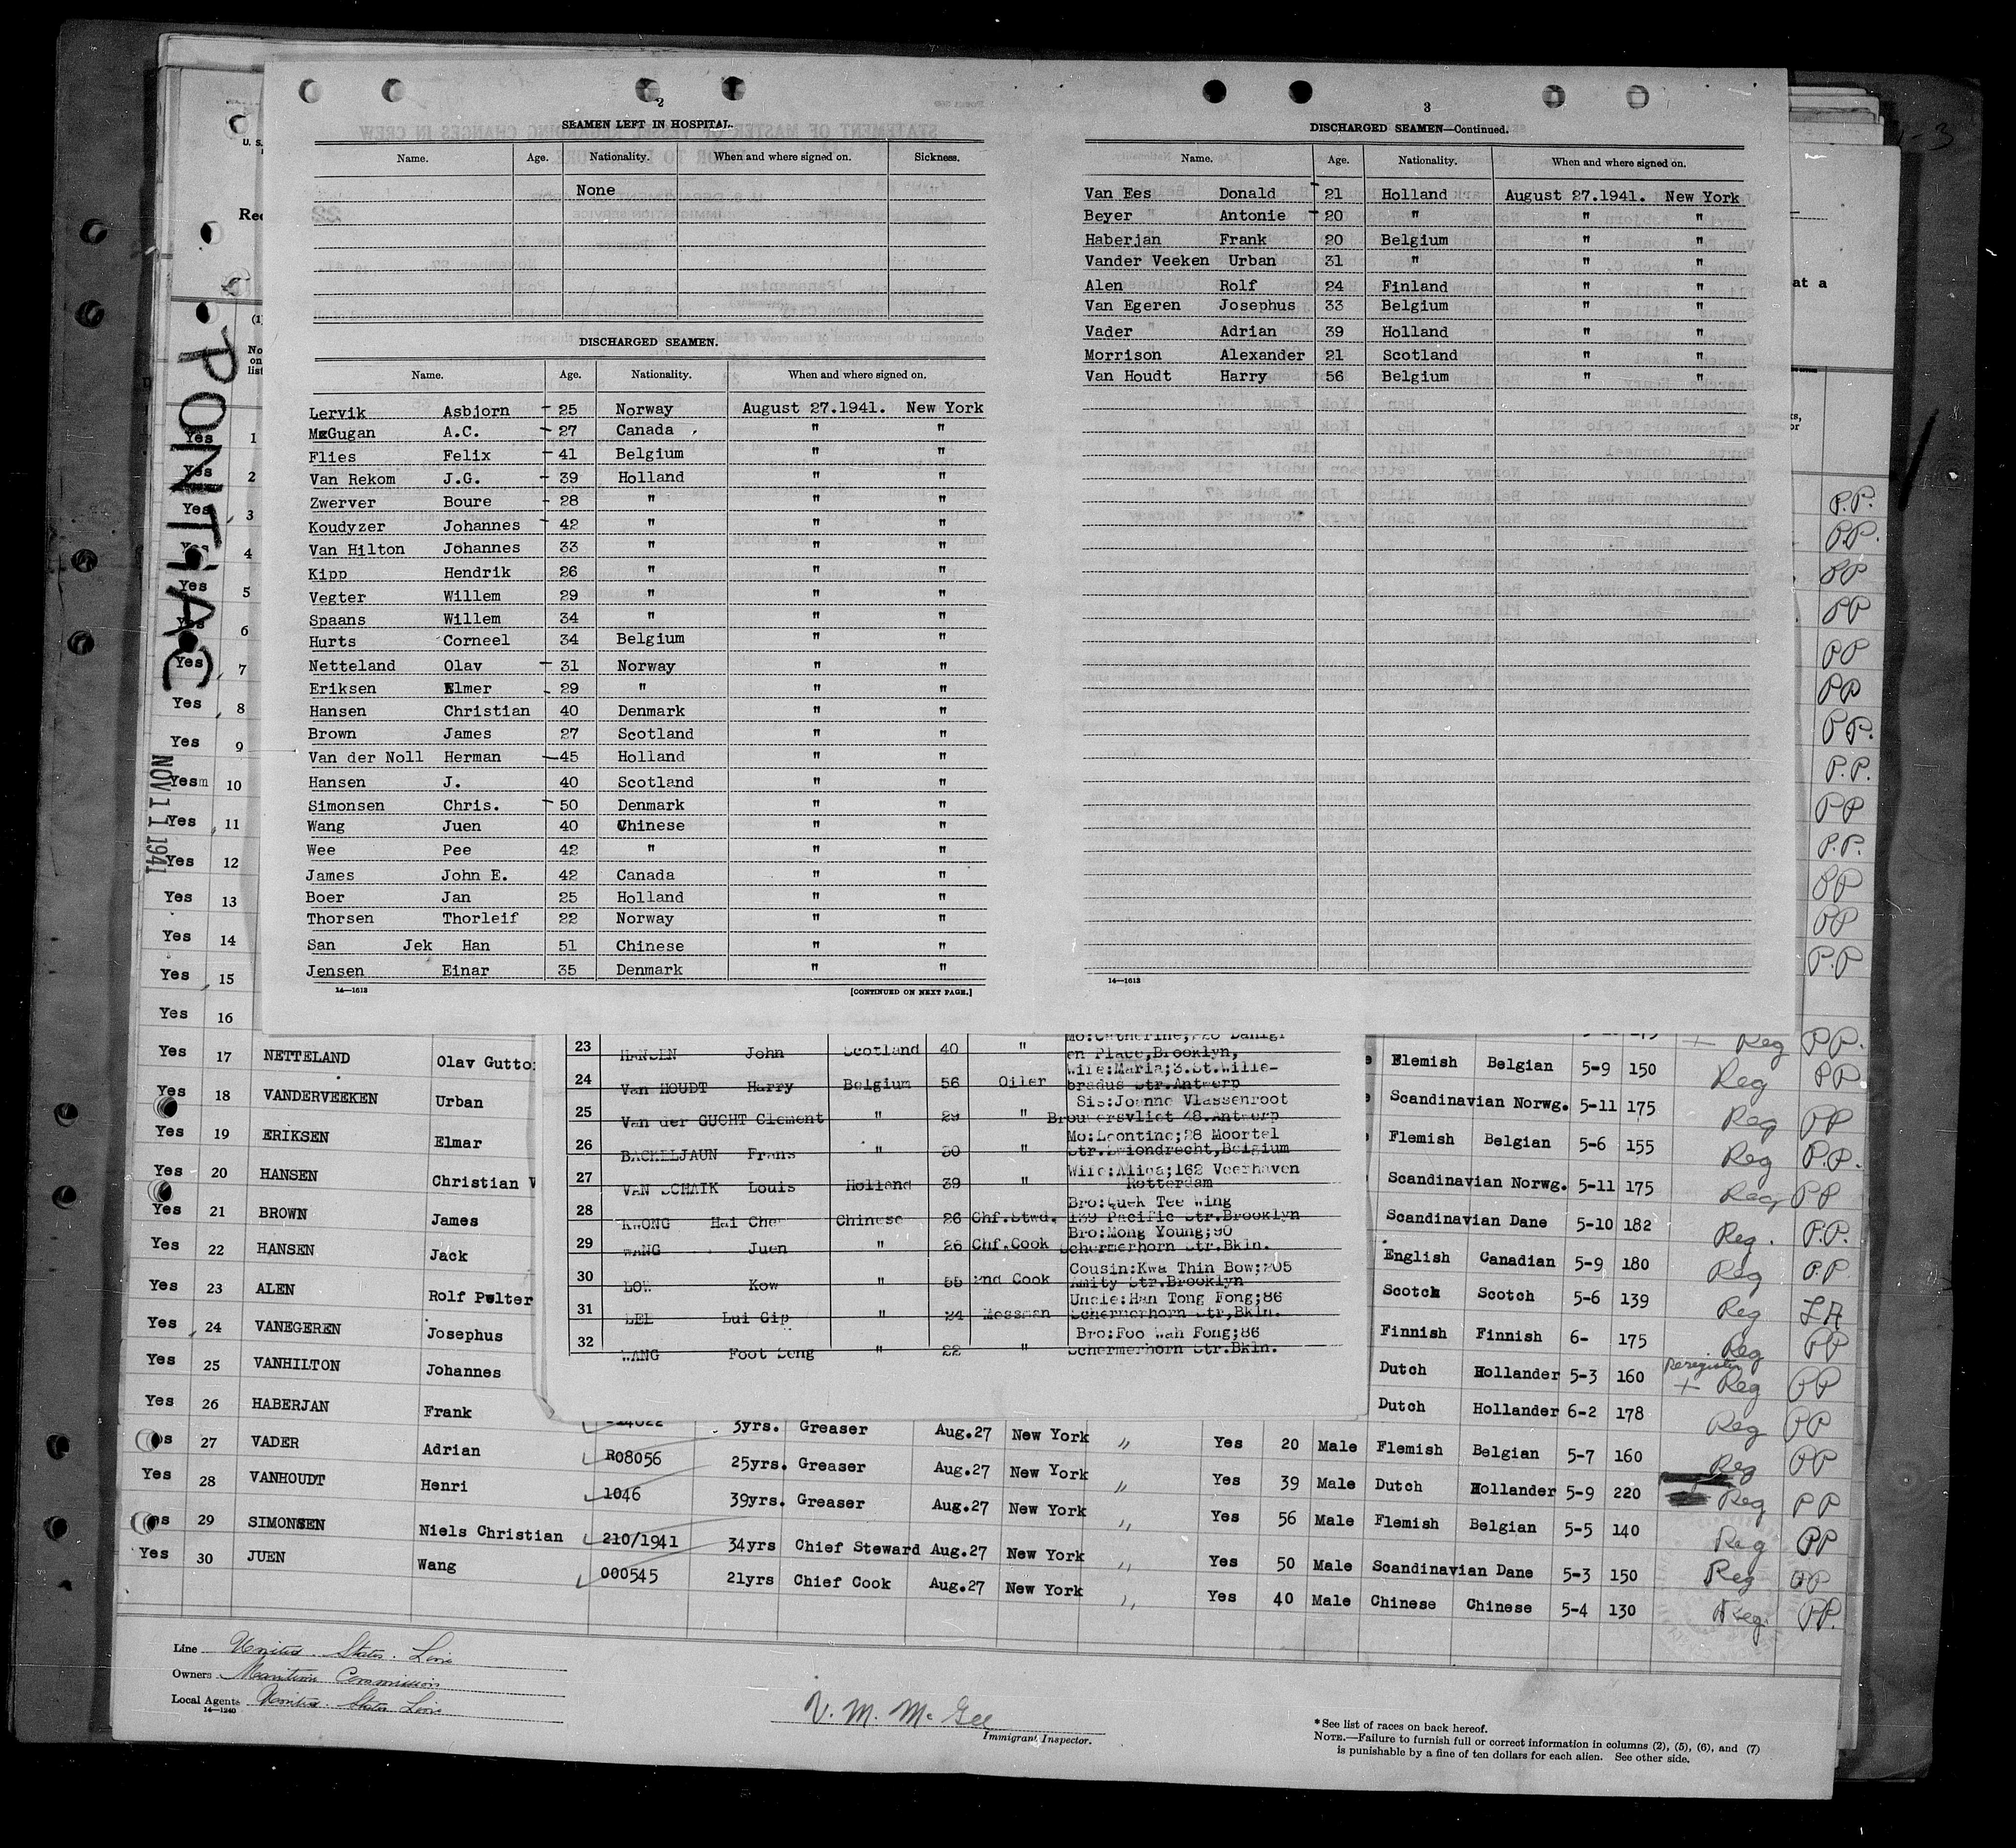 2
SEAMEN LEFT IN HOSPITAL.
Name. Age. Nationality. When and where signed on. Sickness.
None
DISCHARGED SEAMEN.
Name. Age. Nationality. When and where signed on.
Lervik Asbjorn 25 Norway August 27.1941. New York
McGugan A.C. 27 Canada " "
Flies Felix 41 Belgium " "
Van Rekom J.G. 39 Holland " "
Zwerver Boure 28 " " "
Koudyzer Johannes 42 " " "
Van Hilton Johannes 33 " " "
Kipp Hendrik 26 " " "
Vegter Willem 29 " " "
Spaans Willem 34 " " "
Hurts Corneel 34 Belgium " "
Netteland Olav 31 Norway " "
Eriksen Elmer 29 " " "
Hansen Christian 40 Denmark " "
Brown James 27 Scotland " "
Van der Noll Herman 45 Holland " "
Hansen J. 40 Scotland " "
Simonsen Chris. 50 Denmark " "
Wang Juen 40 Chinese " "
Wee Pee 42 " " "
James John E. 42 Canada " "
Boer Jan 25 Holland " "
Thorsen Thorleif 22 Norway " "
San Jek Han 51 Chinese " "
Jensen Einar 35 Denmark " "
14—1613 [CONTINUED ON NEXT PAGE.]
3
DISCHARGED SEAMEN—Continued.
Name. Age. Nationality. When and where signed on.
Van Ees Donald 21 Holland August 27.1941. New York
Beyer Antonie 20 " " "
Haberjan Frank 20 Belgium " "
Vander Veeken Urban 31 " " "
Alen Rolf 24 Finland " "
Van Egeren Josephus 33 Belgium " "
Vader Adrian 39 Holland " "
Morrison Alexander 21 Scotland " "
Van Houdt Harry 56 Belgium " "
14—1613
U. S.
Rec
at a
PONTIAC
NOV 11 1941
(1)
No
on
list
Yes 1
Yes 2
Yes 3
Yes 4
Yes 5
Yes 6
Yes 7
Yes 8
Yes 9
Yesm 10
Yes 11
Yes 12
Yes 13
Yes 14
Yes 15
Yes 16
Yes 17 NETTELAND Olav Gutto
Yes 18 VANDERVEEKEN Urban
Yes 19 ERIKSEN Elmar
Yes 20 HANSEN Christian V
Yes 21 BROWN James
Yes 22 HANSEN Jack
Yes 23 ALEN Rolf Pelter
Yes 24 VANEGEREN Josephus
Yes 25 VANHILTON Johannes
Yes 26 HABERJAN Frank
27 VADER Adrian
Yes 28 VANHOUDT Henri
29 SIMONSEN Niels Christian
Yes 30 JUEN Wang
23 HANSEN John Scotland 40 "
en Place,Brooklyn,
24 Van HOUDT Harry Belgium 56 Oiler Wife:Maria;3.St.Wille-
bradus Str.Antwerp
25 Van der GUCHT Clement " 29 " Sis:Joanne Vlassenroot
Brouwersvliet 48.Antwerp
26 BACKELJAUN Frans " 30 " Mo:Leontine;28 Moortel
Str.Zwiondrecht,Belgium
27 VAN SCHAIK Louis Holland 39 " Wife:Alida;162 Veerhaven
Rotterdam
28 KWONG Hai Chew Chinese 26 Chf.Stwd. Bro:Quek Tee Wing
139 Pacific Str.Brooklyn
29 WANG Juen " 26 Chf.Cook Bro:Mong Young;90
Schermerhorn Str.Bkln.
30 LOW Kow " 55 2nd Cook Cousin:Kwa Thin Bow;205
Amity Str.Brooklyn
31 LEE Lui Gip " 24 Messman Uncle:Han Tong Fong;86
Schermerhorn Str,Bkln.
32 WANG Foot Seng " 22 " Bro:Foo Wah Fong;86
Schermerhorn Str.Bkln.
Flemish Belgian 5-9 150 Reg PP
Scandinavian Norwg. 5-11 175 Reg PP
Flemish Belgian 5-6 155 Reg P.P.
Scandinavian Norwg. 5-11 175 Reg PP
Scandinavian Dane 5-10 182 Reg. P.P.
English Canadian 5-9 180 Reg P.P
Scotch Scotch 5-6 139 Reg
Finnish Finnish 6- 175 Reg PP
Dutch Hollander 5-3 160 Reregister + Reg PP
Dutch Hollander 6-2 178 Reg PP
3yrs. Greaser Aug.27 New York " Yes 20 Male Flemish Belgian 5-7 160 Reg PP
R08056 25yrs. Greaser Aug.27 New York " Yes 39 Male Dutch Hollander 5-9 220 Reg PP
1046 39yrs. Greaser Aug.27 New York " Yes 56 Male Flemish Belgian 5-5 140 Reg PP
210/1941 34yrs Chief Steward Aug.27 New York " Yes 50 Male Scandinavian Dane 5-3 150 Reg PP
000545 21yrs Chief Cook Aug.27 New York " Yes 40 Male Chinese Chinese 5-4 130 Reg. PP.
Line United States Line
Owners Maritime Commission
Local Agents United States Line
14—1240
V. M. McGee
Immigrant Inspector.
* See list of races on back hereof.
NOTE.—Failure to furnish full or correct information in columns (2), (5), (6), and (7)
is punishable by a fine of ten dollars for each alien. See other side.